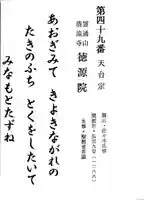 第四十九番 天台宗
霊通山
清滝寺 徳源院
開山・佐々木氏信
開創年・弘安九年(一二八六)
本尊・聖観世音菩薩
あおぎみて きよきながれの
たきのぶち とくをしたいて
みなもとたずね